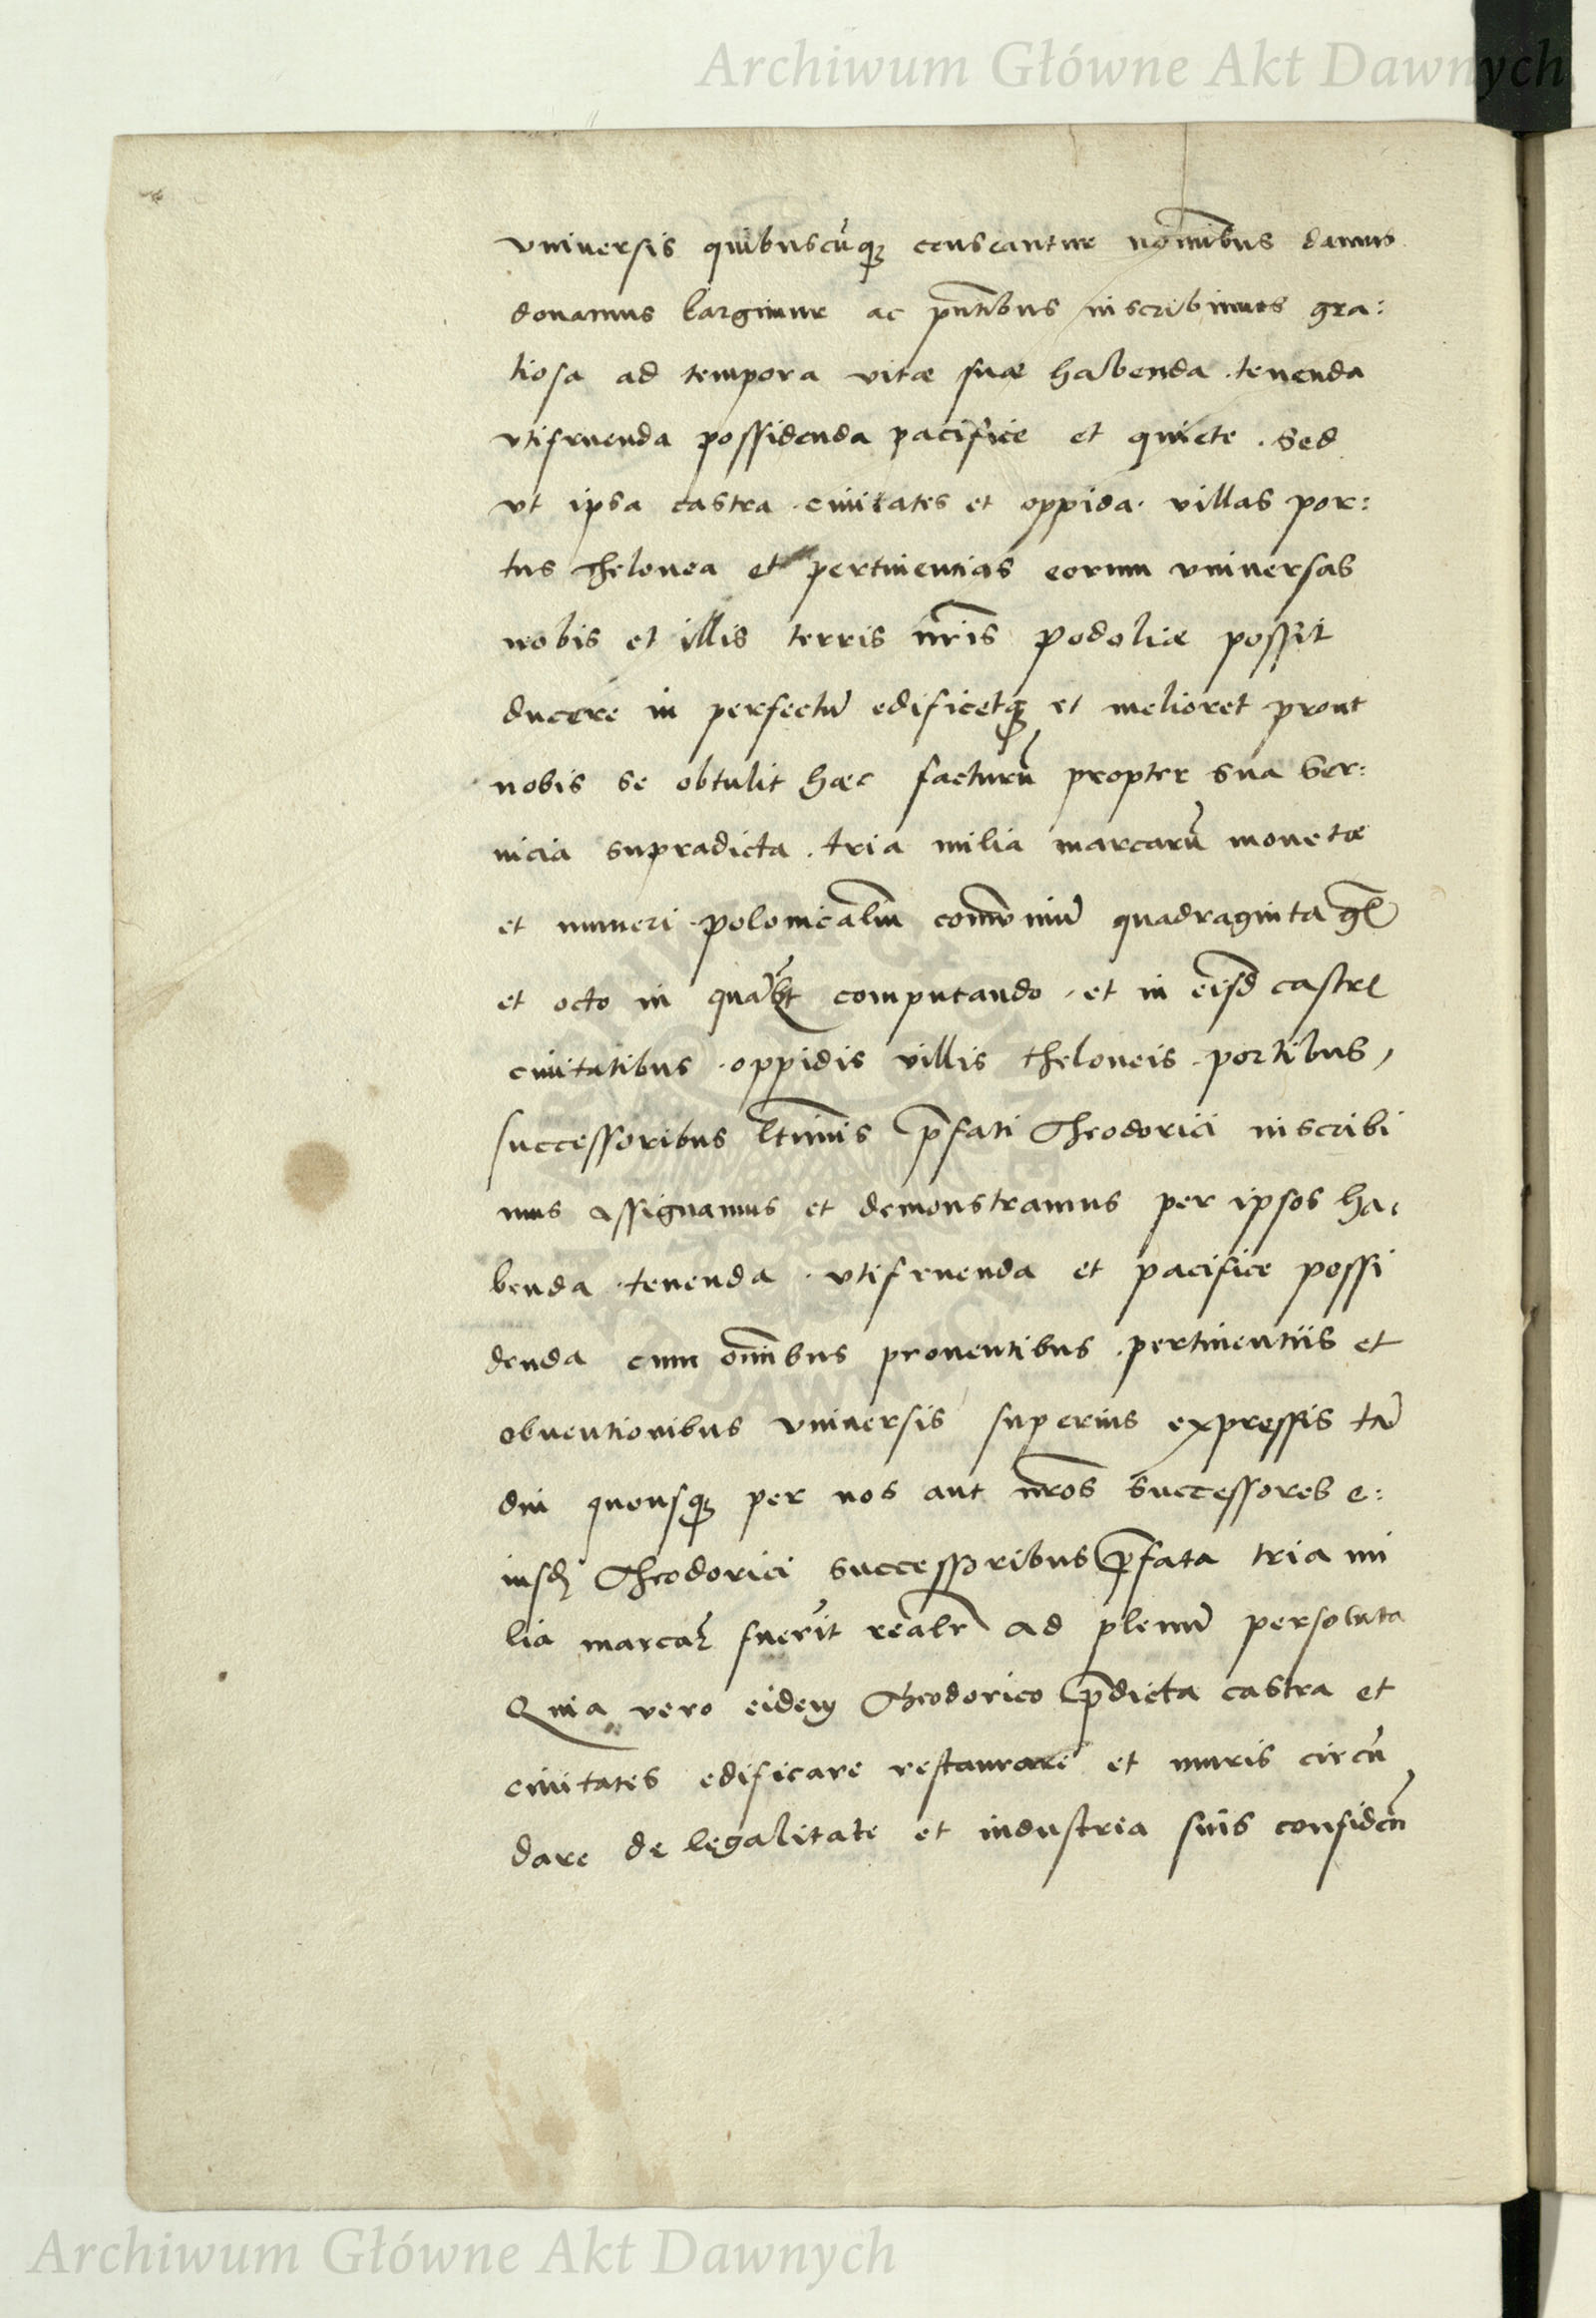 Archiwum Główne Akt Dawnych
vniuersis quibuscūqꝫ censeantur noībus damus
donamus largimur ac pn̄tibus inscribimus gra:
tiosa ad tempora vitæ suæ habenda . tenenda
vtifruenda possidenda pacifice et quiete . Sed
vt ipsa castra . ciuitates et oppida . villas por:
tus thelonea et pertinentias eorum vniuersas
nobis et illis terris nr̄is Podoliæ possit
ducere in perfectū edificetqꝫ et melioret prout
nobis se obtulit hæc facturū propter sua Ser:
uicia supradicta . tria milia marcarū monetæ
et numeri polonicaliū com̄uniū quadraginta gṙ
et octo in quālꝫt computando . et in eisd̄ castrꝭ
ciuitatibus . oppidis villis theloneis . portibus,
successoribus ltīmis p̄fati Theodorici inscribi
mus assignamus et demonstramus per ipsos ha:
benda . tenenda . vtifruenda et pacifice possi
denda cum om̄ibus prouentibus . pertinentiis et
obuentionibus vniuersis superius expressis tā
diu quousqꝫ per nos aut nr̄os successores e:
iusd̄ Theodorici successoribus p̄fata tria mi
lia marcaꝝ fuer̄it realr̄ ad plenū persoluta
Quia vero eidem Theodorico p̄dicta castra et
ciuitates edificare restaurare et muris circū
dare de legalitate et industria suis confiden̄
Archiwum Główne Akt Dawnych